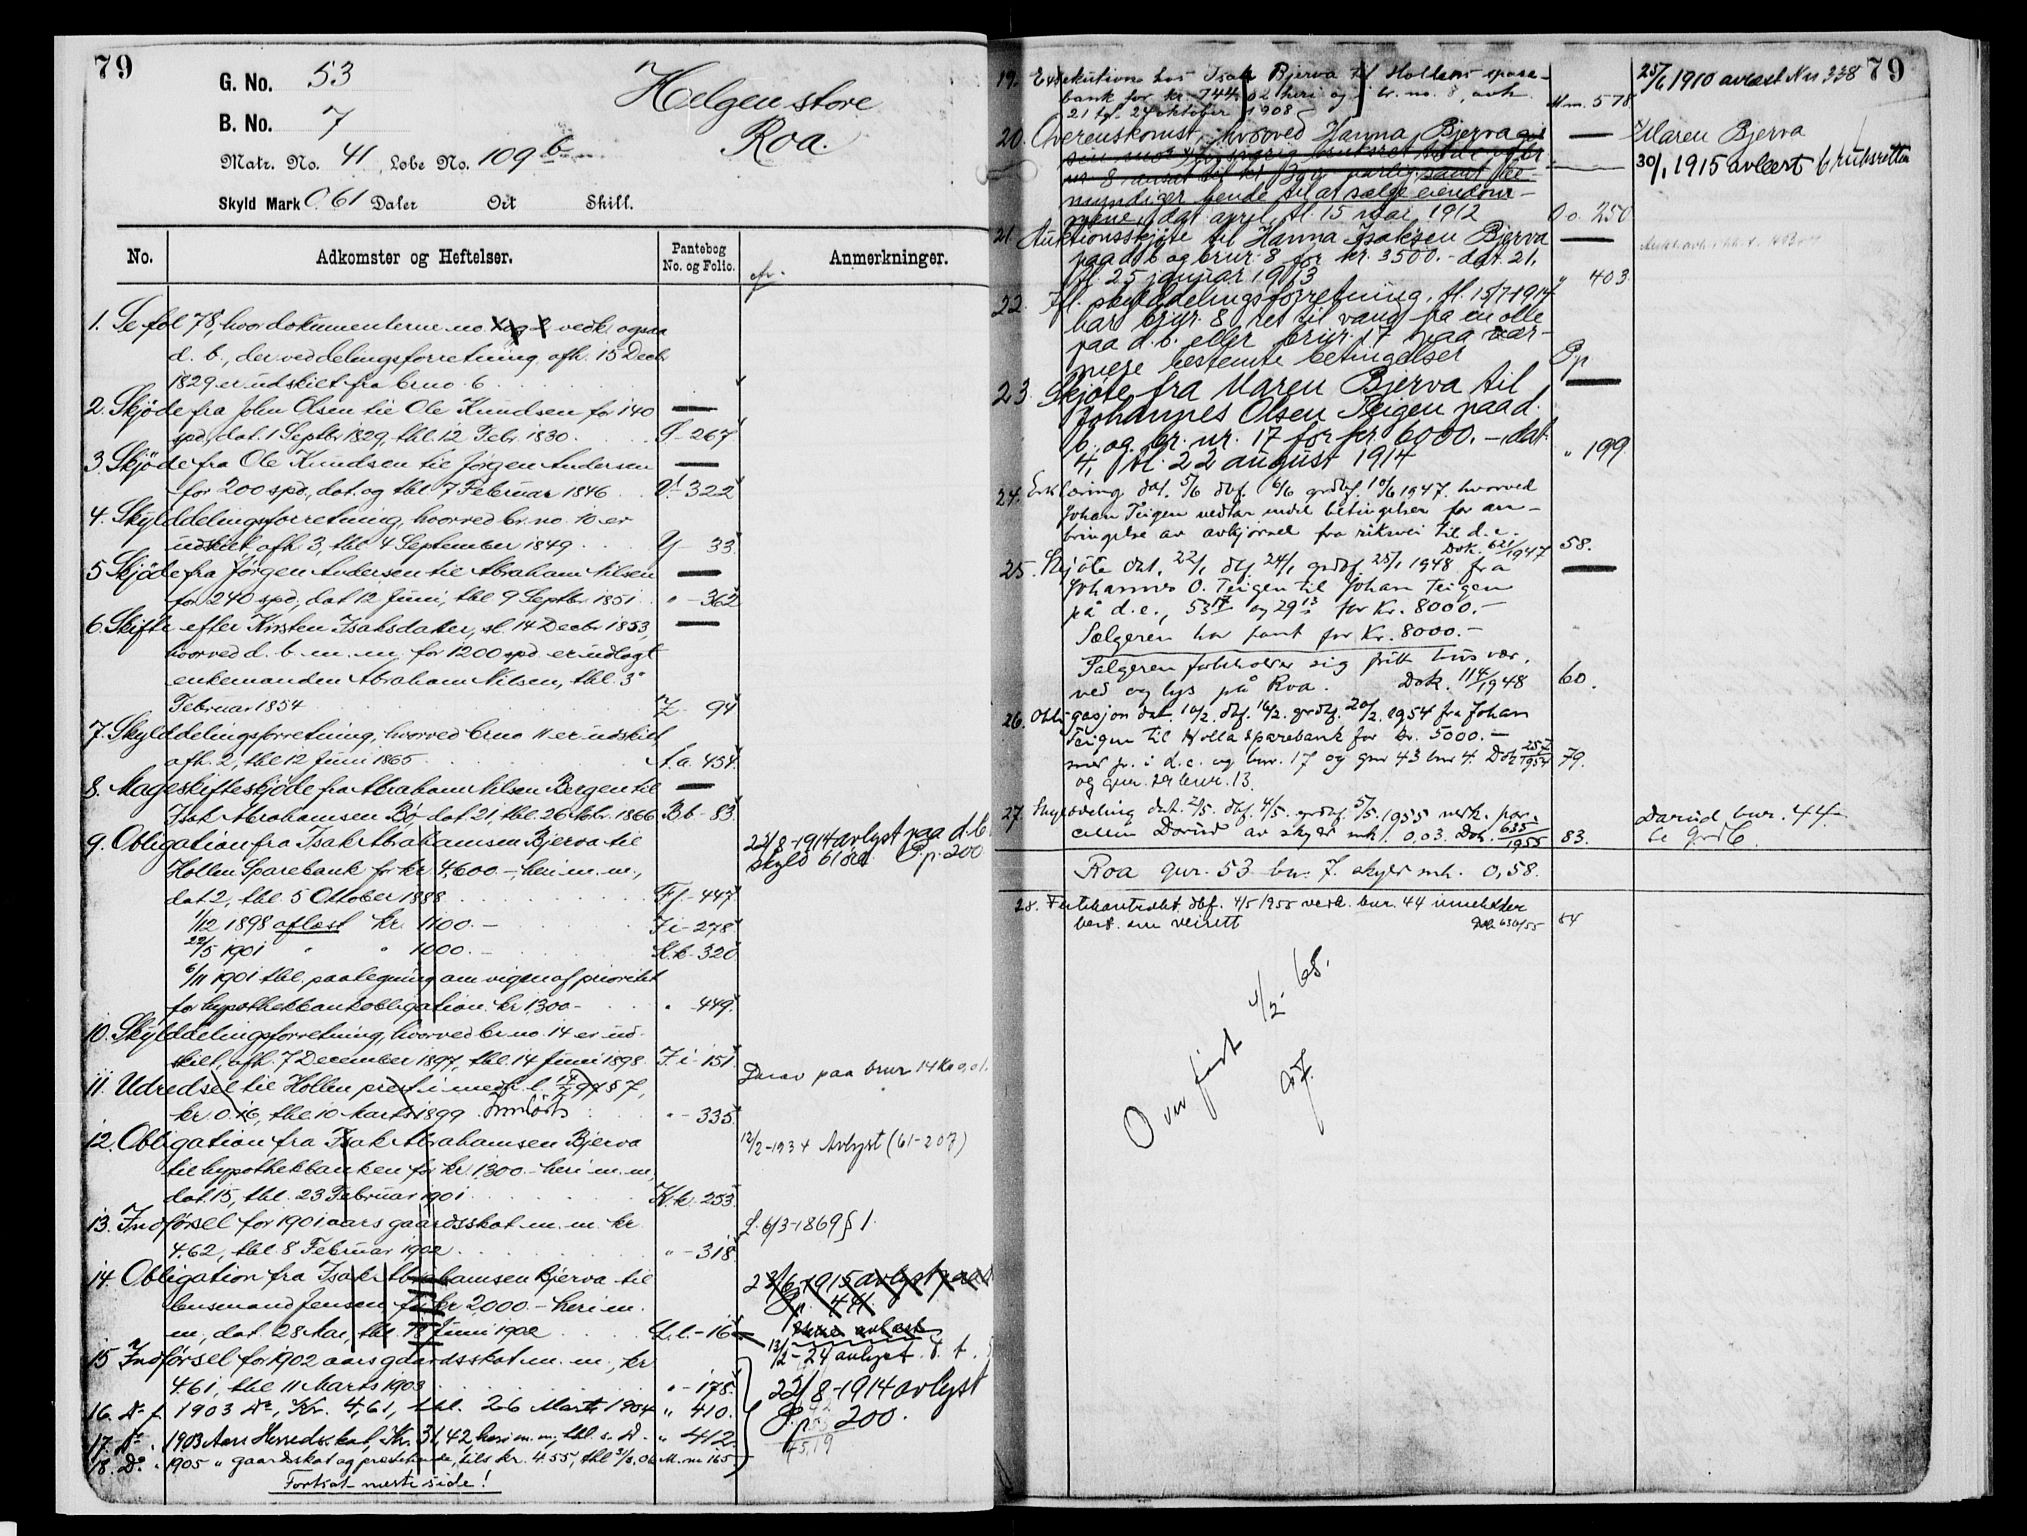 79
G. No. 53
B. No. 7
Matr. No. 41, Løbe No. 109 b
Skyld Mark 0.61 Daler Ort Skill.
Helgen store
Roa.
No. Adkomster og Heftelser. Pantebog No. og Folio. Anmerkninger.
1. Se fol 78, hvor dokumenterne no 1 og 2 vedk. ogsaa
d. b., der ved delingsforretning afh. 15 Decb
1829 er udskilt fra br no. 6
2. Skjöde fra John Olsen til Ole Knudsen for 140
spd, dat. 1 Septbr 1829, thl. 12 Febr. 1830. 267
3. Skjöde fra Ole Knudsen til Jörgen Andersen
for 200 spd., dat. og thl 7 Februar 1846 322
4. Skylddelingsforretning, hvorved br. no. 10 er
udskilt, afh. 3, thl 4 September 1849 Y 33
5 Skjöde fra Jörgen Andersen til Abraham Nilsen
for 240 spd, dat 12 Juni, thl 9 Septbr. 1851 " - 362
6. Skifte efter Kirsten Isaksdatter, sl. 14 Decbr 1853,
hvorved d. b. m. m. for 1200 spd er udlagt
enkemanden Abraham Nilsen, thl. 3
Februar 1854 Z - 94
7. Skylddelingsforretning, hvorved br no 11 er udskilt
afh. 2, thl 12 Juni 1865 A.a. 454
8. Mageskifteskjöde fra Abraham Nilsen Bergen til
Isak Abrahamsen Bö dat 21, thl. 26 1866 B b - 83
9. Obligation fra Isak Abrahamsen Bjerva til
Hollen Sparebank for kr. 4,600 -, heri m. m.,
dat 2, thl. 5 Oktober 1888 F f - 447
22/8-1914 avlyst paa d. b.
skyld 61 øre P.p. 200
1/12 1898 aflæst kr. 1100. - I i - 278
22/5 1901 " " 1000. - K.k - 320
6/11 1901 thl. paategning om vigen af prioritet
for hypothekbankobligation kr 1300 - " - 449
10. Skylddelingsforretning, hvorved br. no. 14 er ud-
skilt, afh. 7 December 1897, thl. 14 Juni 1898 I i - 151
11. Udredsel til Hollen prest i medh. l. 97 § 7,
kr 0.16, thl. 10 Marts 1899. " - 335
Derav paa brnr 14 kr 0,01.
12. Obligation fra Isak Abrahamsen Bjerva
til hypothekbanken for kr. 1300. - heri m. m,
dat. 15, thl. 23 Februar 1901 K.k - 253
12/2-1934 Avlyst (61-207)
13. Indförsel for 1901 aars gaardsskat m. m. kr
4.62, thl. 8 Februar 1902 " - 318
L. 6/3-1869 § 1.
14. Obligation fra Isak Abrahamsen Bjerva til
lensmand Jensen for kr 2000. - heri m.
m, dat. 28 Mai, thl. Juni 1902 L.l. - 16
23/6-1915 avlyst
P. 441.
Ikke avlæst
13/2-24 avlyst.
15 Indförsel for 1902 aars gaardsskat m. m., kr
4.61, thl 11 Marts 1903 " - 178
16. Do f. 1903 Do, Kr. 4,61, thl. 26 Marts 1904 " 410.
17. Do . 1903 Aars Herredsskat, Kr. 31,42, heri m. m, thl. s. D. " 412.
18. Do . 1905 " gaardsskat og tils kr. 4.55, thl 3/3.06 M.m 165
22/8-1914 avlyst
P.p. 200.
Fortsat næste side!
79
19. Exekution hos Isak Bjerva til Hollens spare-
bank for kr. 744,02 heri og i br. no. 8, avh.
21 tgl. 24 oktober 1908 M.m. 578
25/6 1910 avlæst Nn 338
20. Overenskomst, hvorved Hanna Bjerva
nr. 8 ansat til kr
myndiger hende til at sælge eiendom-
mene, dat. april, tl. 15 mai 1912 O o. 250
Maren Bjerva
30/1 1915 avlæst bruksretten
21. Auktionsskjøte til Hanna Isaksen Bjerva
paa d. b. og brnr. 8 for kr. 3500. - dat. 21,
tl. 25 januar 1913 " 403
22. Ifl. skylddelingsforretning, tl. 15/7-1914
har brnr. 8 ret til vand fra en olle
paa d. b. eller brnr. 17 paa nær-
mere bestemte betingelser P p
23. Skjøte fra Maren Bjerva til
Johannes Olsen Teigen paa d.
b. og br. nr. 17 for kr 6000. - dat.
4, tl. 22 august 1914 " 199
24. Erklæring dat. 5/6 dbf. 6/6 grdbf. 10/6 1947 hvorved
Johan Teigen vedtar endel betingelser for an-
bringelse av avkjørsel fra riksvei til d. e.
Dok. 621/1947 58.
25. Skjöte dat. 22/1 dbf 24/1 grdbf. 25/1 1948 fra
Johannes O. Teigen til Johan Teigen
på d. e., 53/17 og 29/13 for Kr. 8000. -
Selgeren har pant for Kr. 8000. -
Selgeren forbeholder sig fritt husvær,
ved og lys på Roa. Dok. 114/1948 60.
26. Obligasjon dat. 10/2. dbf. 16/2. grdbf. 20/2. 1954 fra Johan
Teigen til Holla Sparebank for kr. 5000. -
med pr. i d. e. og bnr. 17 og gnr 43 bnr 4. Dok 257/1954 79.
og gnr. 29 bnr. 13.
27. Skylddeling dat. 2/5. dbf. 4/5. grdbf. 5/5. 1955 vedk. par-
cellen Dorud av skyld mk. 0,03. Dok. 635/1955 83.
Darud bnr. 44
se grdb.
Roa gnr. 53 bnr. 7. skyld mk. 0,58.
28. Festekontrakt dbf. 4/5 1955 vedk. bnr. 44 inneholder
best. om veirett Dok 636/55 84
Overført 1/2-68.